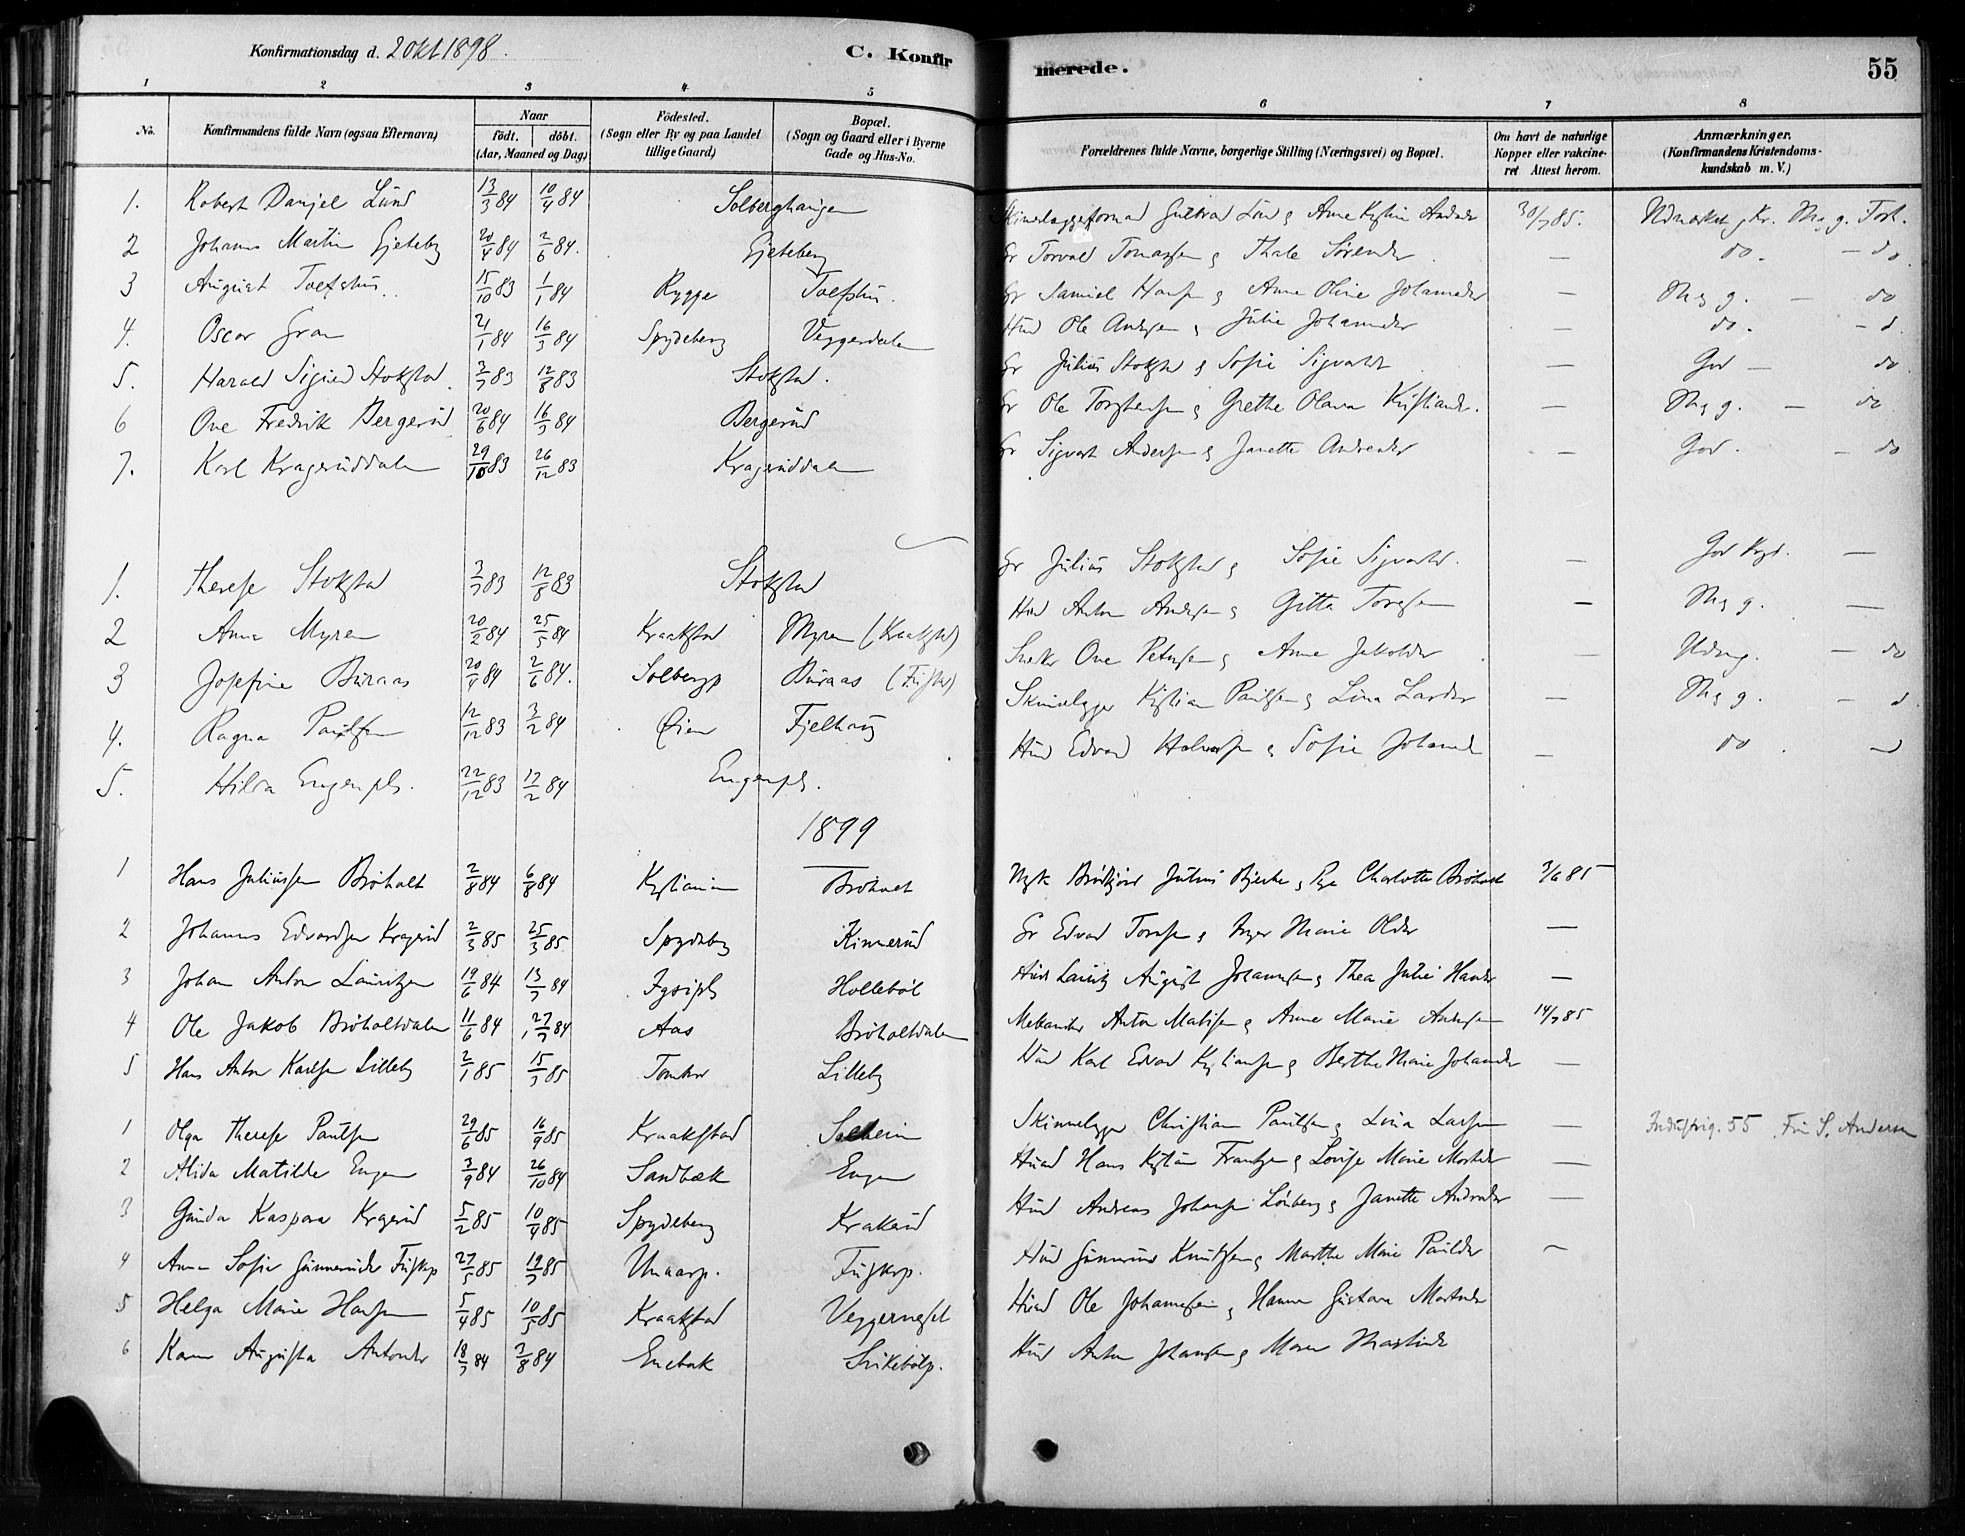 Konfirmationsdag d. 2 Okt 1898.
C. Konfirmerede.
55
1 2 3 4 5 6 7 8
No.
Konfirmandens fulde Navn (ogsaa Efternavn)
Naar
födt. döbt.
(Aar, Maaned og Dag)
Födested.
(Sogn eller By og paa Landet tillige Gaard)
Bopæl.
(Sogn og Gaard eller i Byerne Gade og Hus-No.
Forældrenes fulde Navne, borgerlige Stilling (Næringsvei) og Bopæl.
Om havt de naturlige Kopper eller vakcineret Attest herom.
Anmærkninger.
(Konfirmandens Kristendomskundskab m. V.)
1. Robert Danjel Lund 13/3 84 10/4 84 Solberghaugen 30/7 85. Kr. Mg. Forh.
2 Johannes Martin Gjeteby 20/4 84 2/6 84. Gjeteberg Gr Torvald Tomassen & Thale Sørensdr — do. — do
3 August Toefshus 15/10 83 1/1 84 Rygge Toefshu. Gr Samuel Hansen & Anne Oline Johannesdr — Meg g. — do
4. Oscar Gran 21/1 84 16/3 84 Spydeberg Veggerdalen Husm Ole Andersen & Julie Johannesdr — do. — d
5. Harald Sigurd Stokstad 3/7 83 12/8 83 Stokstad. Gr Julius Stokstad & Sofie Sigvartsdr — God — do
6 Ove Fredrik Bergerud 20/6 84 16/3 84 Bergerud Gr Ole Torstensen & Grethe Olava Kristiansdr. — Meg g. — do
7. Karl Krageruddalen 29/10 83 26/12 83 Krageruddalen Gr Sigvart Andersen & Janette Andreasdr — God. — do
1. Therese Stokstad 3/7 83 12/8 83 Stokstad Gr Julius Stokstad & Sofie Sigvartsdr. — God —
2 Anna Myren 20/2 84 25/5 84 Kraakstad Myren (Kraakstad) Husm Anton Andersen & Gitta Toresen — Meg g. —
3 Josefine Buraas 20/4 84 2/6 84. Solbergp Buraas Snekr Ove Petersen & Anne Jakobsdr — Udmg. — do
4. Ragna Paulsen 12/12 83 3/2 84 Øien Fjelhaug Skinnelægger Kristian Paulsen & Lina Larsdr — Meg g. — d
5. Hilda Engenpls. 22/12 83 17/2 84 Engenpls. Husm Edvard Halvorsen & Sofie Johannesdr — do. — d
1899
1 Hans Juliussen Brøholt 2/8 84 6/8 84 Kristiania Brøholt Julius Bjerke & Pge Charlotte Brøholt 3/6 85
2 Johannes Edvardsen Kragerud 2/3 85 25/3 85. Spydebg Kinnerud Gr Edvard Toresen & Inger Marie Olsdr —
3 Johan Anton Lauritzen 19/6 84 13/7 84 Hollebøl Husm Lauritz August Johannesen & Thea Julie Hansdr —
4 Ole Jakob Brøholtdalen 11/6 84 27/7 84 Aas Brøholtdalen Anton Matisen & Anne Marie Andersen 14/7 85
5 Hans Anton Karlsen Lilleby 2/1 85 15/3 85 Tomter Lilleby Husm Karl Edvard Kristiansen & Berthe Marie Johannesdr —
1 Olga Therese Paulsen 29/6 85 16/9 85 Kraakstad Solheim Skinnelægger Christian Paulsen & Lina Larsen — Industrig. 55 Fru S. Andersen
2 Alida Matilde Engen 3/9 84 26/10 84 Sandbæk Engen Husmd Hans Kristian Frantzen & Lovise Marie Mortensdr —
3 Gunda Kaspara Kragerud 5/2 85 10/4 85 Spydeberg Krakerud Husm Andreas Johansen Lønberg & Janette Andreasdr —
4 Anna Sofie Gunnerudsdr Fuskop 27/5 85 19/7 85 Fuskop. Husm Gunnerius Knutsen & Marthe Marie Paulsdr —
5 Helga Marie Hansen 5/4 85 10/5 85 Kraakstad Veggerneset Husmd Ole Johannesen & Hanna Gustava Mortensdr
6 Karen Augusta Antonsdr 18/7 84 3/8 84 Enebak Husm Anton Johansen & Maren Martinsdr